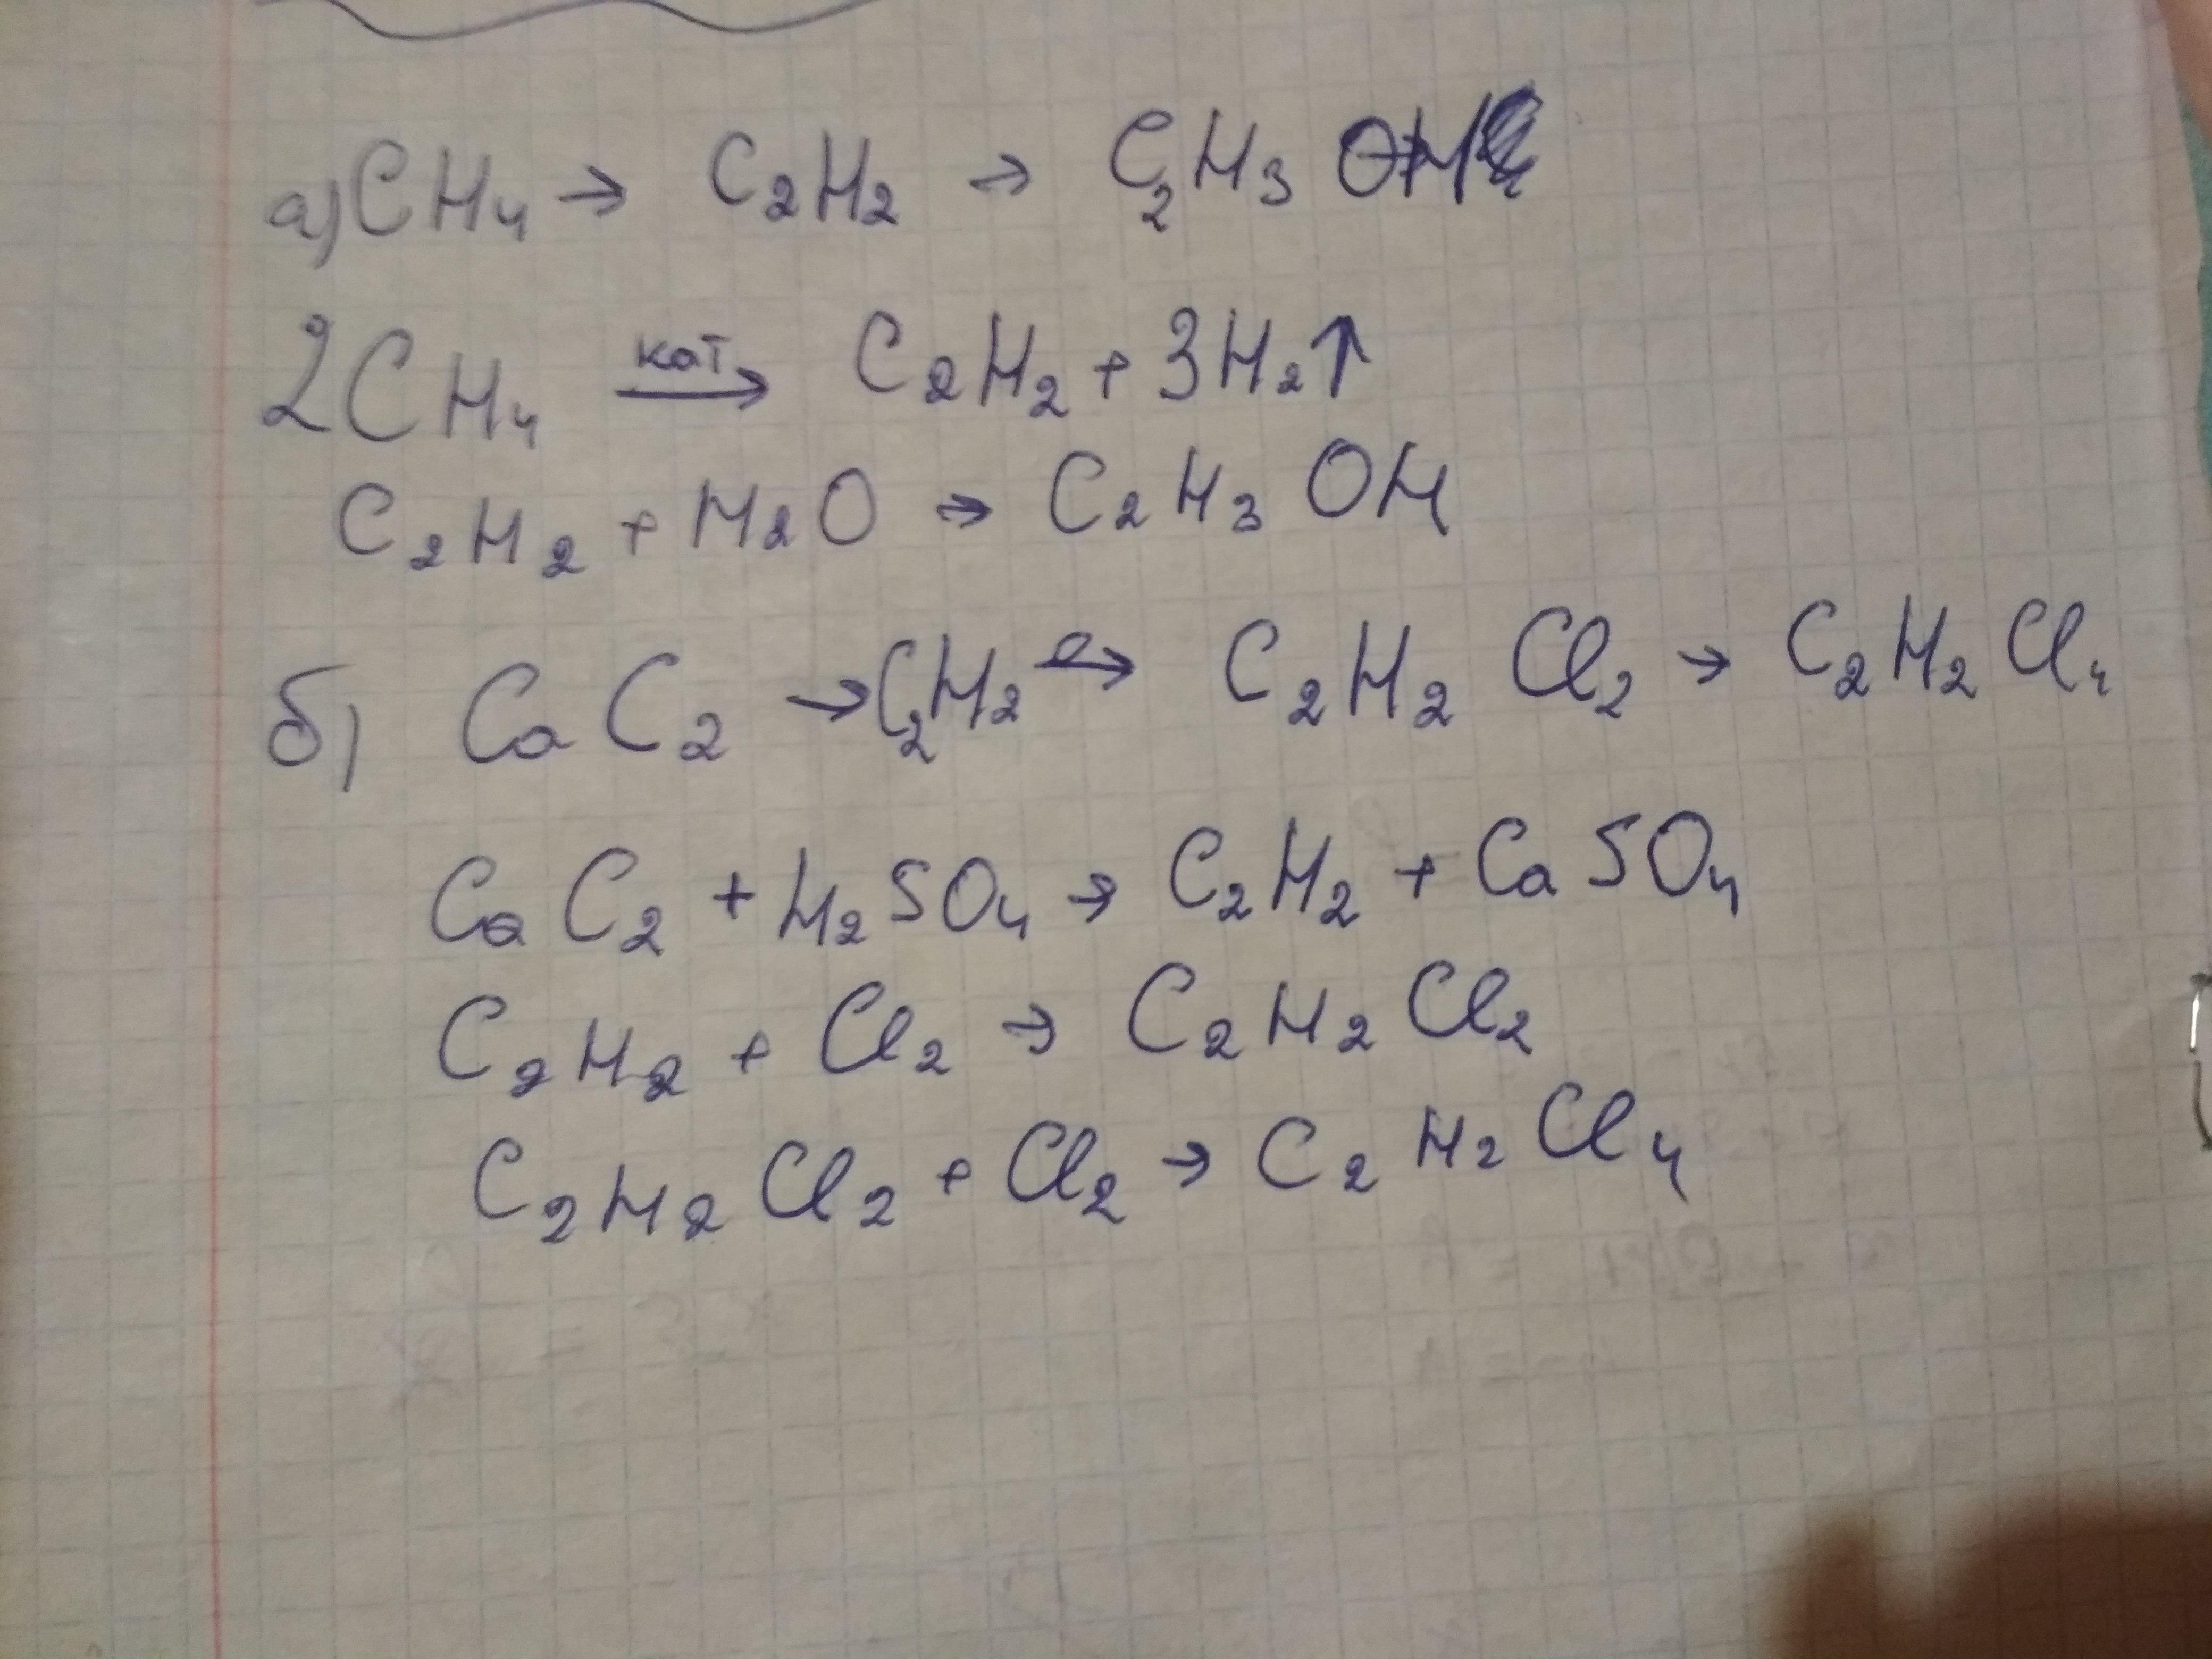 а) CH₄ → C₂H₂ → C₂H₃OH
2CH₄ кат→ C₂H₂ + 3H₂↑
C₂H₂ + H₂O → C₂H₃OH
б) CaC₂ → C₂H₂ → C₂H₂Cl₂ → C₂H₂Cl₄
CaC₂ + H₂SO₄ → C₂H₂ + CaSO₄
C₂H₂ + Cl₂ → C₂H₂Cl₂
C₂H₂Cl₂ + Cl₂ → C₂H₂Cl₄